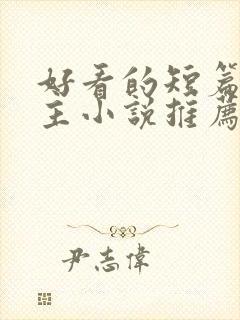 好看的短篇
主小說推薦
尹志偉